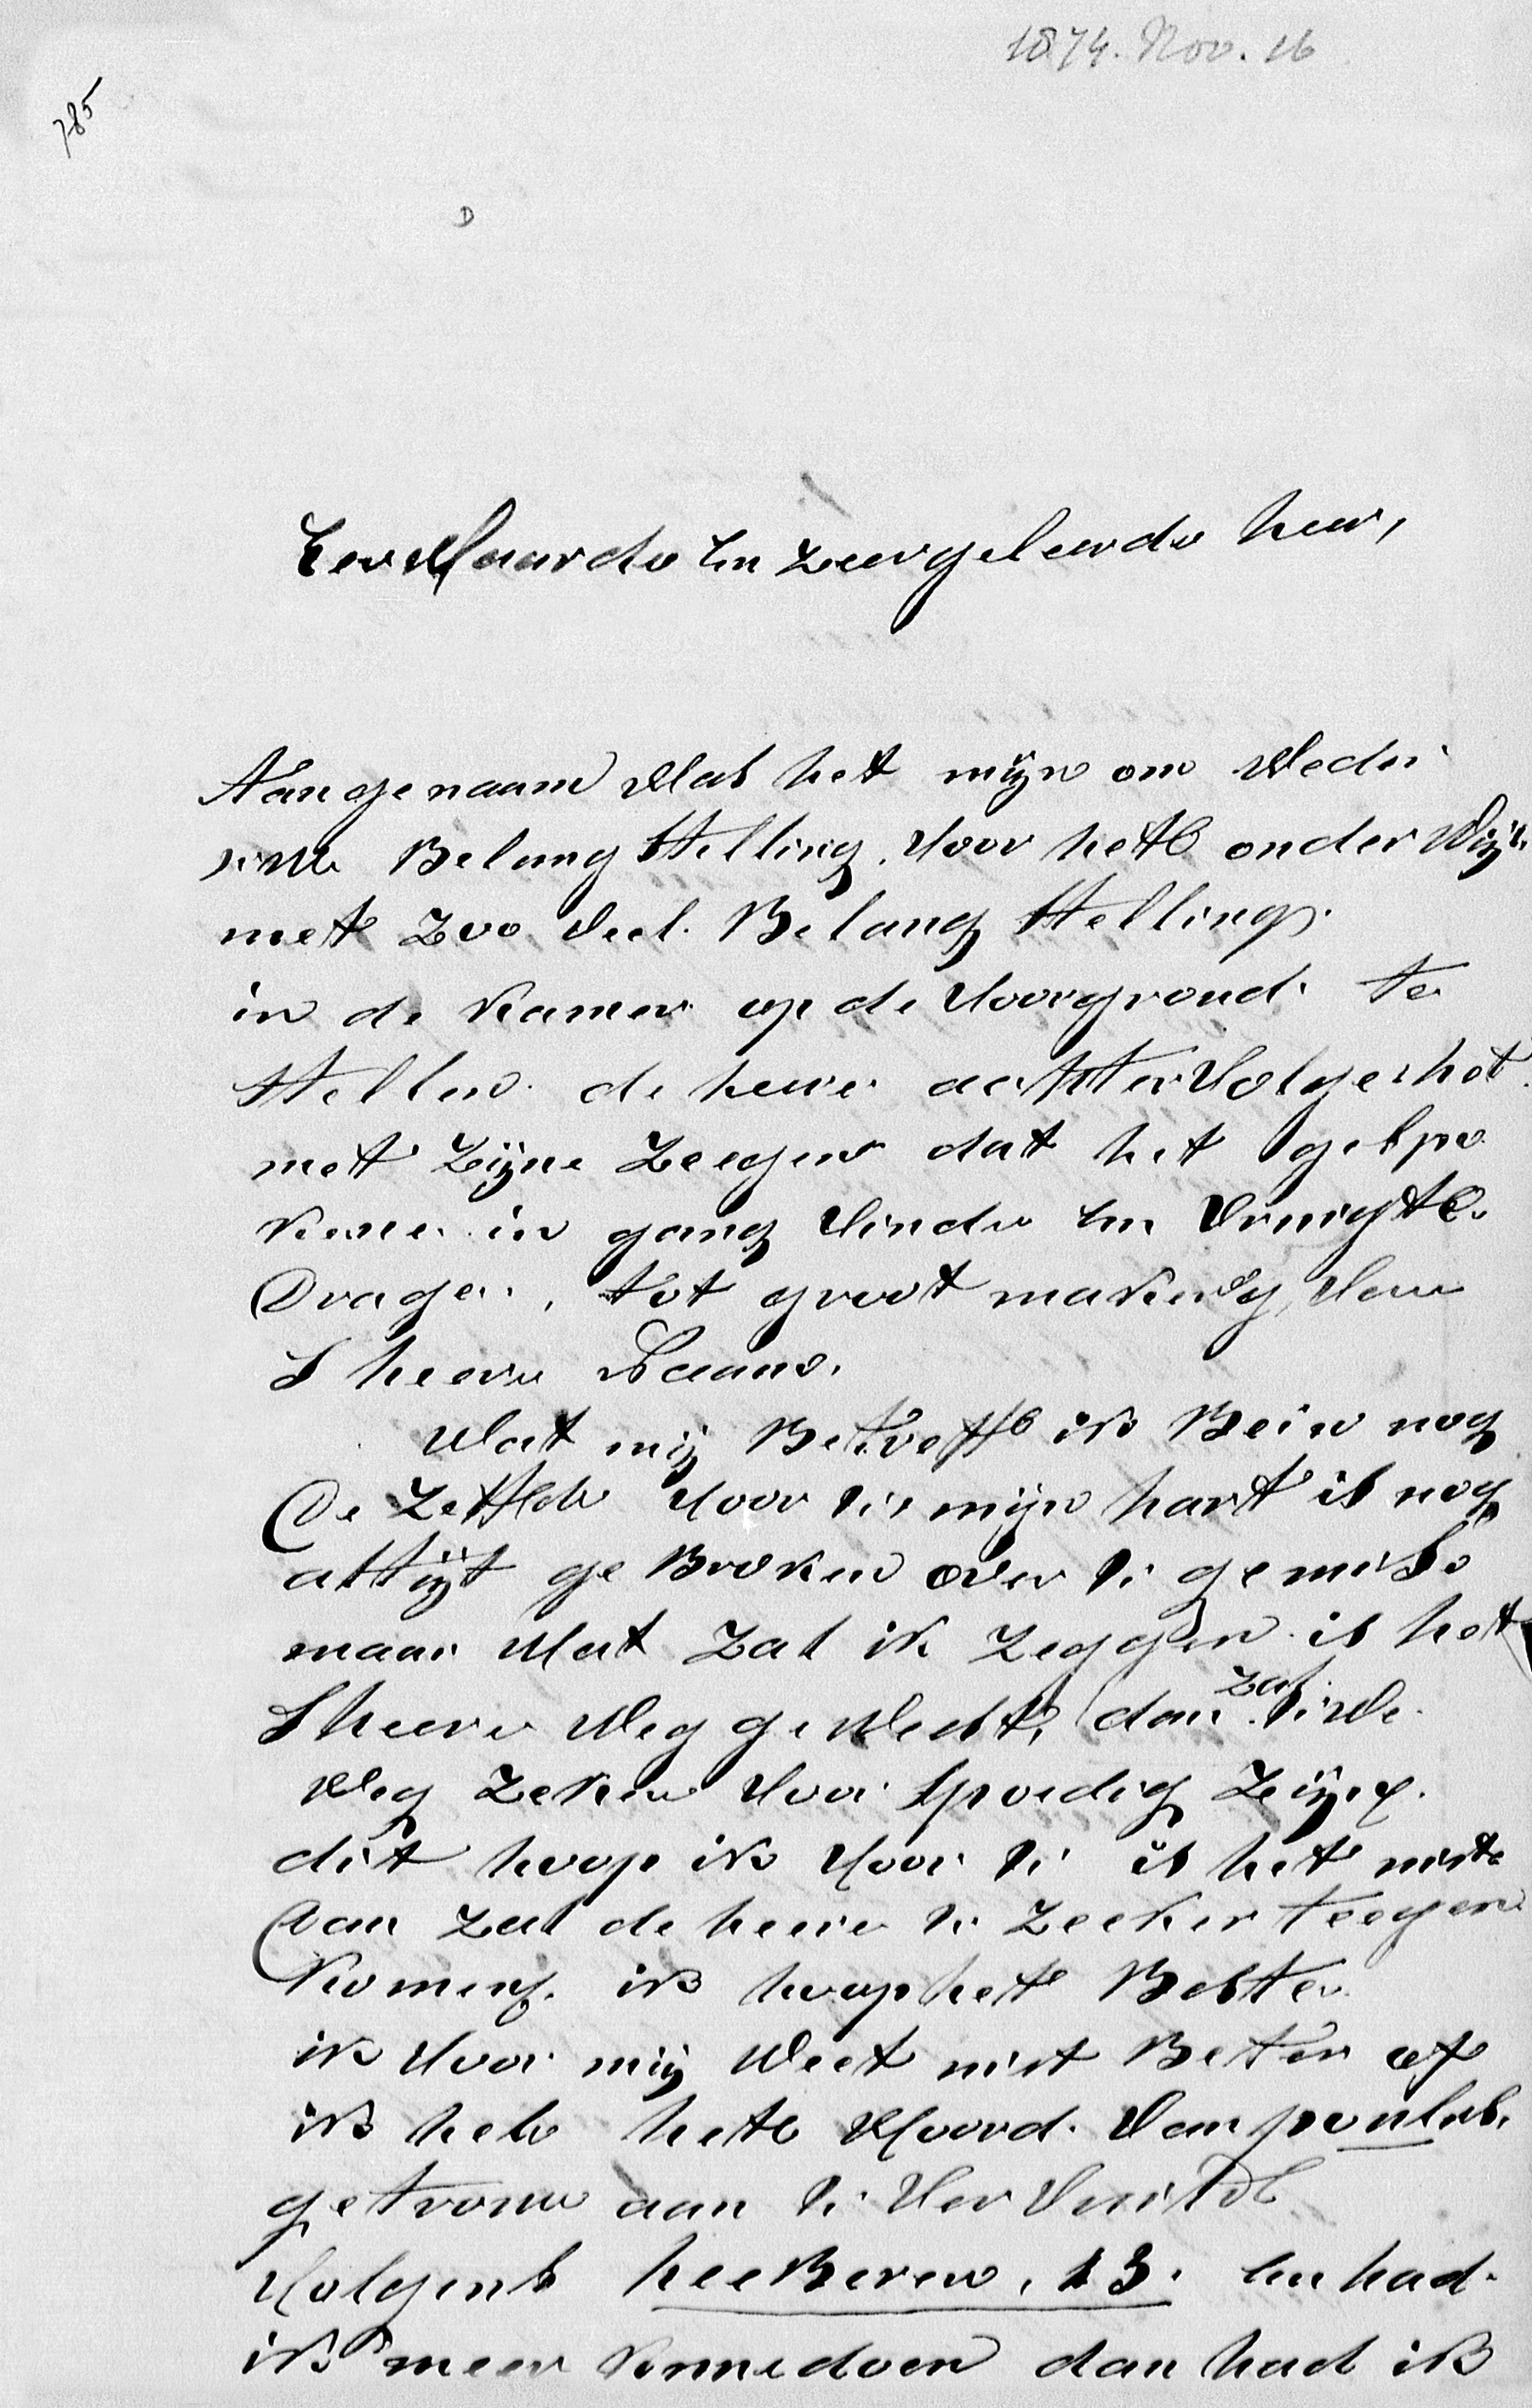 1874. Nov. 16
785
D
Eer Waarde En Zeergeleerde heer,
Aangenaam Was het mijn om Weder
uwe Belang Stelling. Voor het onder Wijs
met Zoo Veel. Belang Stelling
in de Kamer op de Voorgrond te
Stellen de heere achter Volge het
met Zijne Zeegen dat het gespro
kene in gang Vinde En Vrugte
Drage, tot groot making, Van
S heere Naam.
Wat mij Betreft ik Bein nog
De Zelfde Voor U mijn hart is nog
altijt ge Broken over U gemis
maar Wat Zal ik Zeggen is het
S heere Weg ge Weest, dan zal Uwe
Weg Zeker Voor Spoedig Zijn.
dit hoop ik Voor U is het niet
Dan Zal de heere U Zeeker teegen
Komen. ik hoop het Beste
ik Voor mij Weet niet Beter of
ik heb het Woord. Van poulus.
getrouw aan U Ver Vuld
Volgens heeBeren. 13. En had
ik meer Kunne doen dan had ik